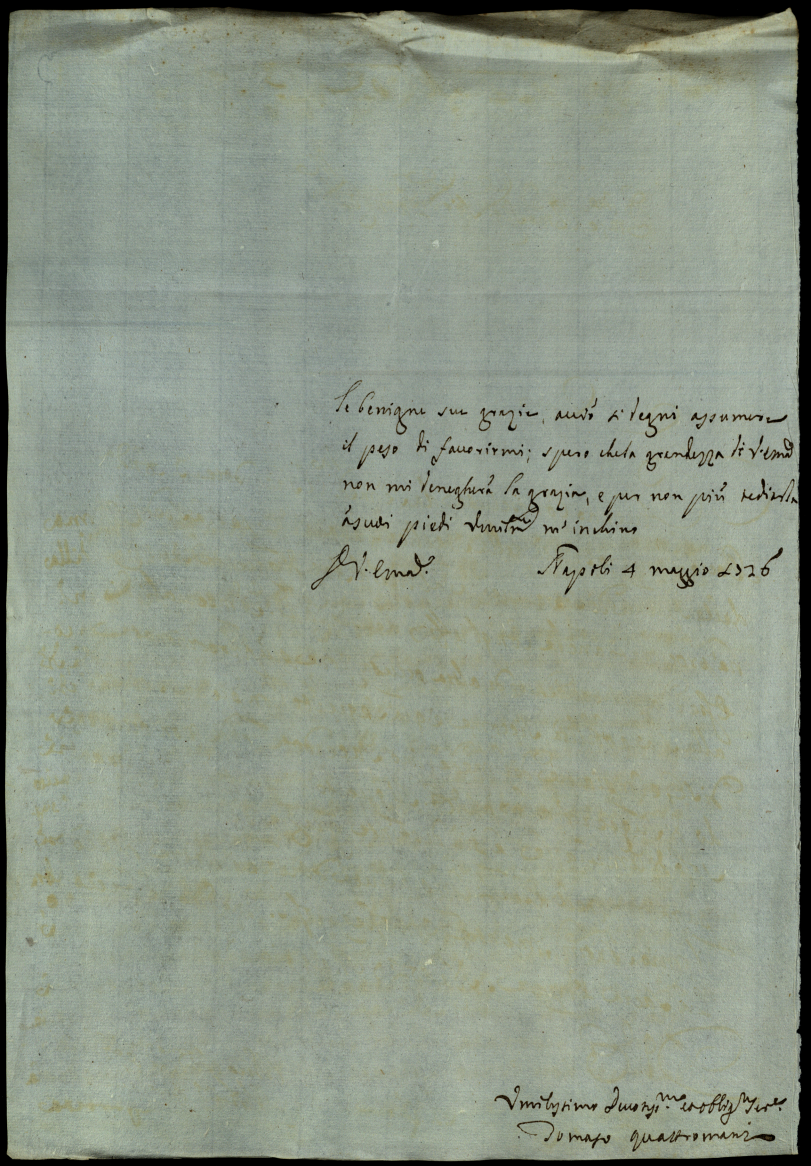 le benigne sue grazie, acciò si degni assumere
il peso di favorirmi; spero che la grandezza di V. Em.ª
non mi denegherà la grazia, e per non più tediarla
à suoi piedi umilm.e m'inchino
D. V. Em.ª Napoli 4 maggio 1726
Umilissimo Devotis.mo et obblig.mo Ser.e
Tomaso Quattromani